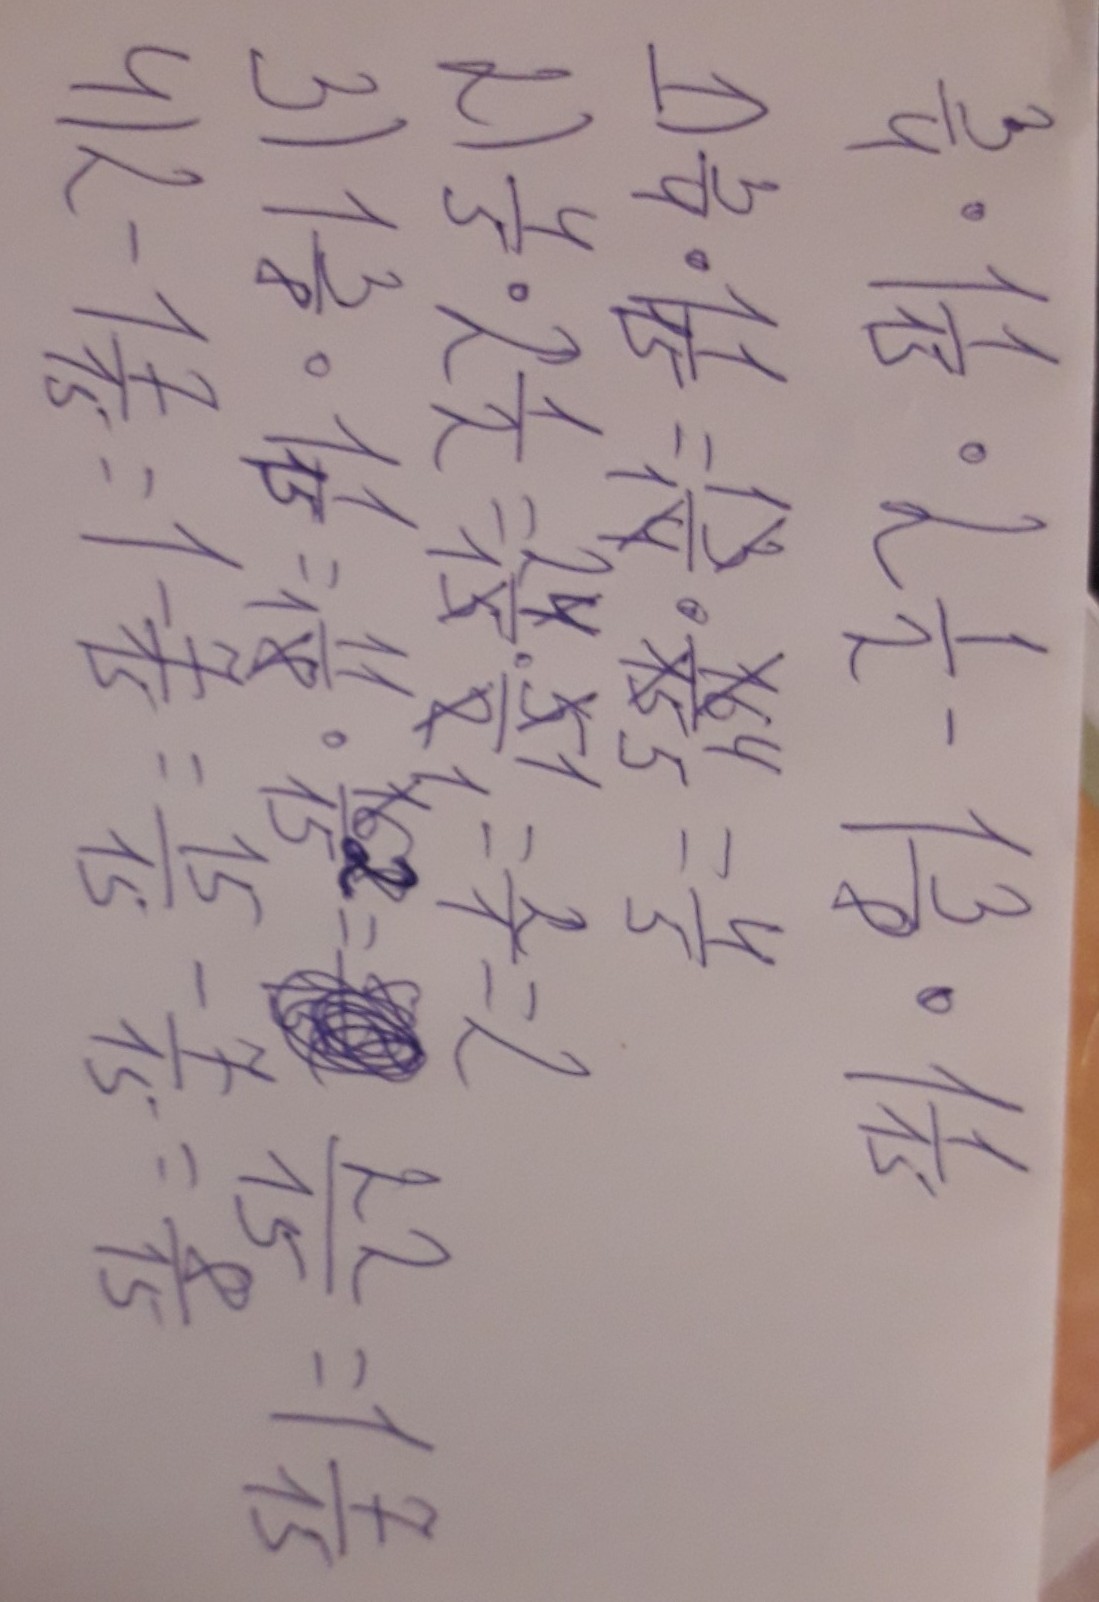 3/4 · 1 1/15 · 2 1/2 - 1 3/8 · 1 1/15
1) 3/4 · 1 1/15 = 1 3/1 4 · 16 4/15 5 = 4/5
2) 4/5 · 2 1/2 = 2 4/1 5 · 5 1/2 1 = 2/1 = 2
3) 1 3/8 · 1 1/15 = 11/1 8 · 16 2/15 = 22/15 = 1 7/15
4) 2 - 1 7/15 = 1 - 7/15 = 15/15 - 7/15 = 8/15